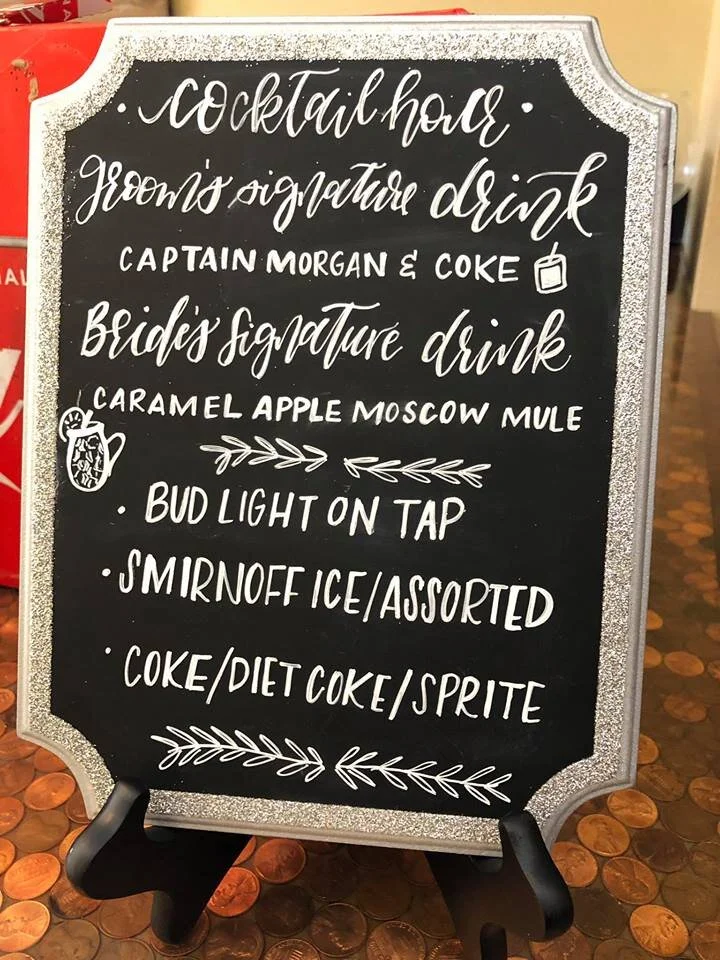 · cocktail hour ·
groom's signature drink
CAPTAIN MORGAN & COKE
Bride's Signature drink
CARAMEL APPLE MOSCOW MULE
· BUD LIGHT ON TAP
· SMIRNOFF ICE/ASSORTED
· COKE/DIET COKE/SPRITE